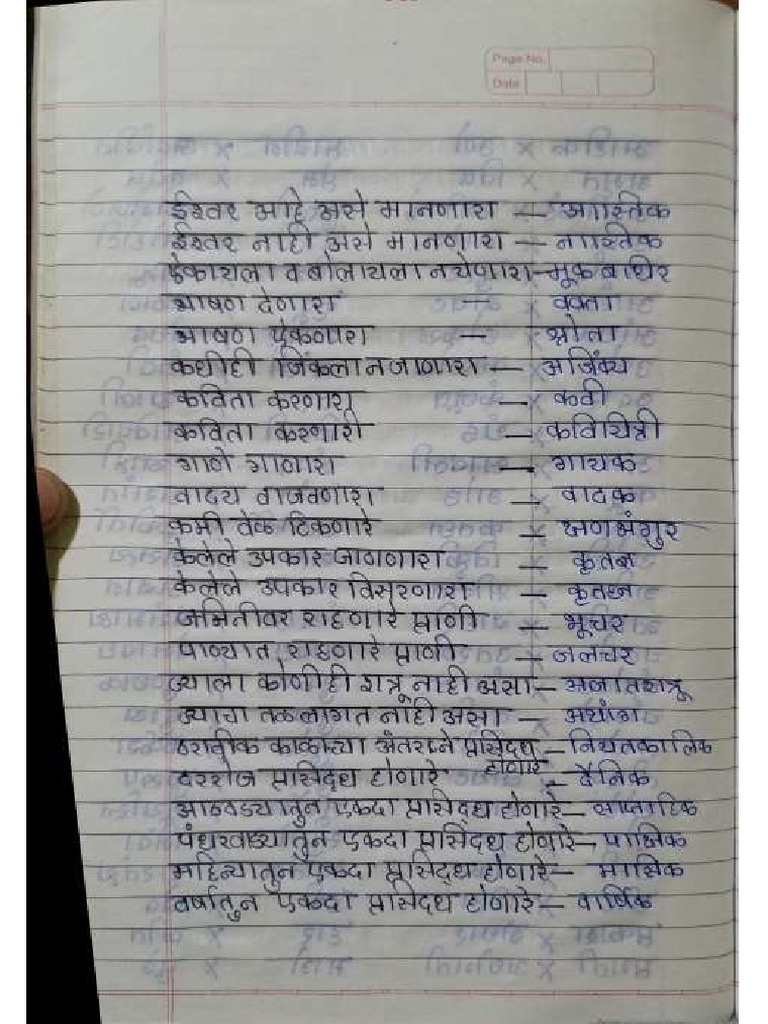 Page No.
Date
ईश्वर आहे असे मानणारा — आस्तिक
ईश्वर नाही असे मानणारा — नास्तिक
ऐकायला व बोलायला न येणारा — मूक बधिर
भाषण देणारा — वक्ता
भाषण ऐकणारा — श्रोता
कधीही जिंकला न जाणारा — अजिंक्य
कविता करणारा — कवी
कविता करणारी — कवियित्री
गाणे गाणारा — गायक
वाद्य वाजवणारा — वादक
कमी वेळ टिकणारे — क्षणभंगुर
केलेले उपकार जाणणारा — कृतज्ञ
केलेले उपकार विसरणारा — कृतघ्न
जमिनीवर राहणारे प्राणी — भूचर
पाण्यात राहणारे प्राणी — जलचर
ज्याला कोणीही शत्रू नाही असा — अजातशत्रू
ज्याचा तळ लागत नाही असा — अथांग
ठराविक काळाच्या अंतराने प्रसिद्ध होणारे — नियतकालिक
दररोज प्रसिद्ध होणारे — दैनिक
आठवड्यातुन एकदा प्रसिद्ध होणारे — साप्ताहिक
पंधरवाड्यातुन एकदा प्रसिद्ध होणारे — पाक्षिक
महिन्यातुन एकदा प्रसिद्ध होणारे — मासिक
वर्षातुन एकदा प्रसिद्ध होणारे — वार्षिक